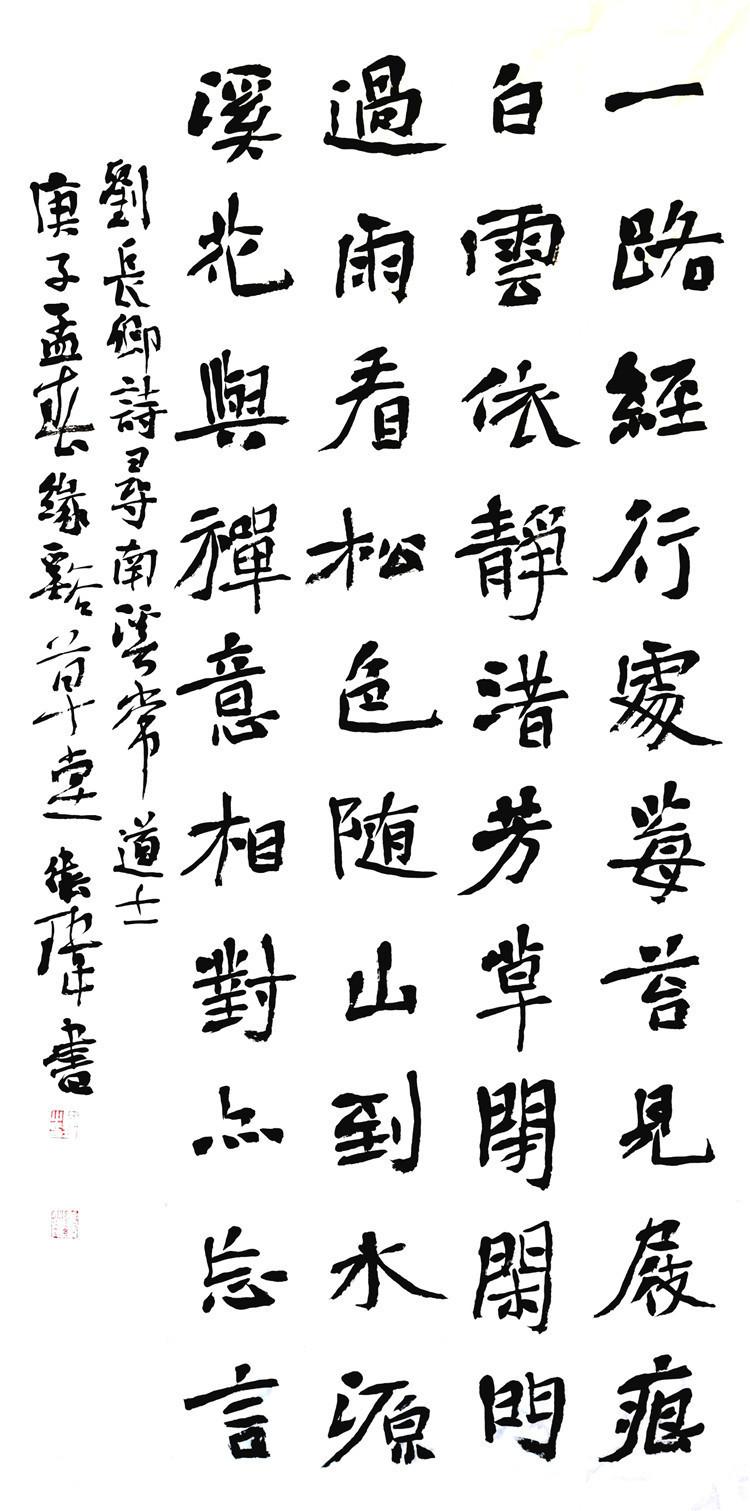 一路經行處莓苔見屐痕
白雲依靜渚芳草閉閑門
過雨看松色随山到水源
溪花與禪意相對亦忘言
劉長卿詩尋南溪常道士
庚子孟春緣谿草堂瑋書